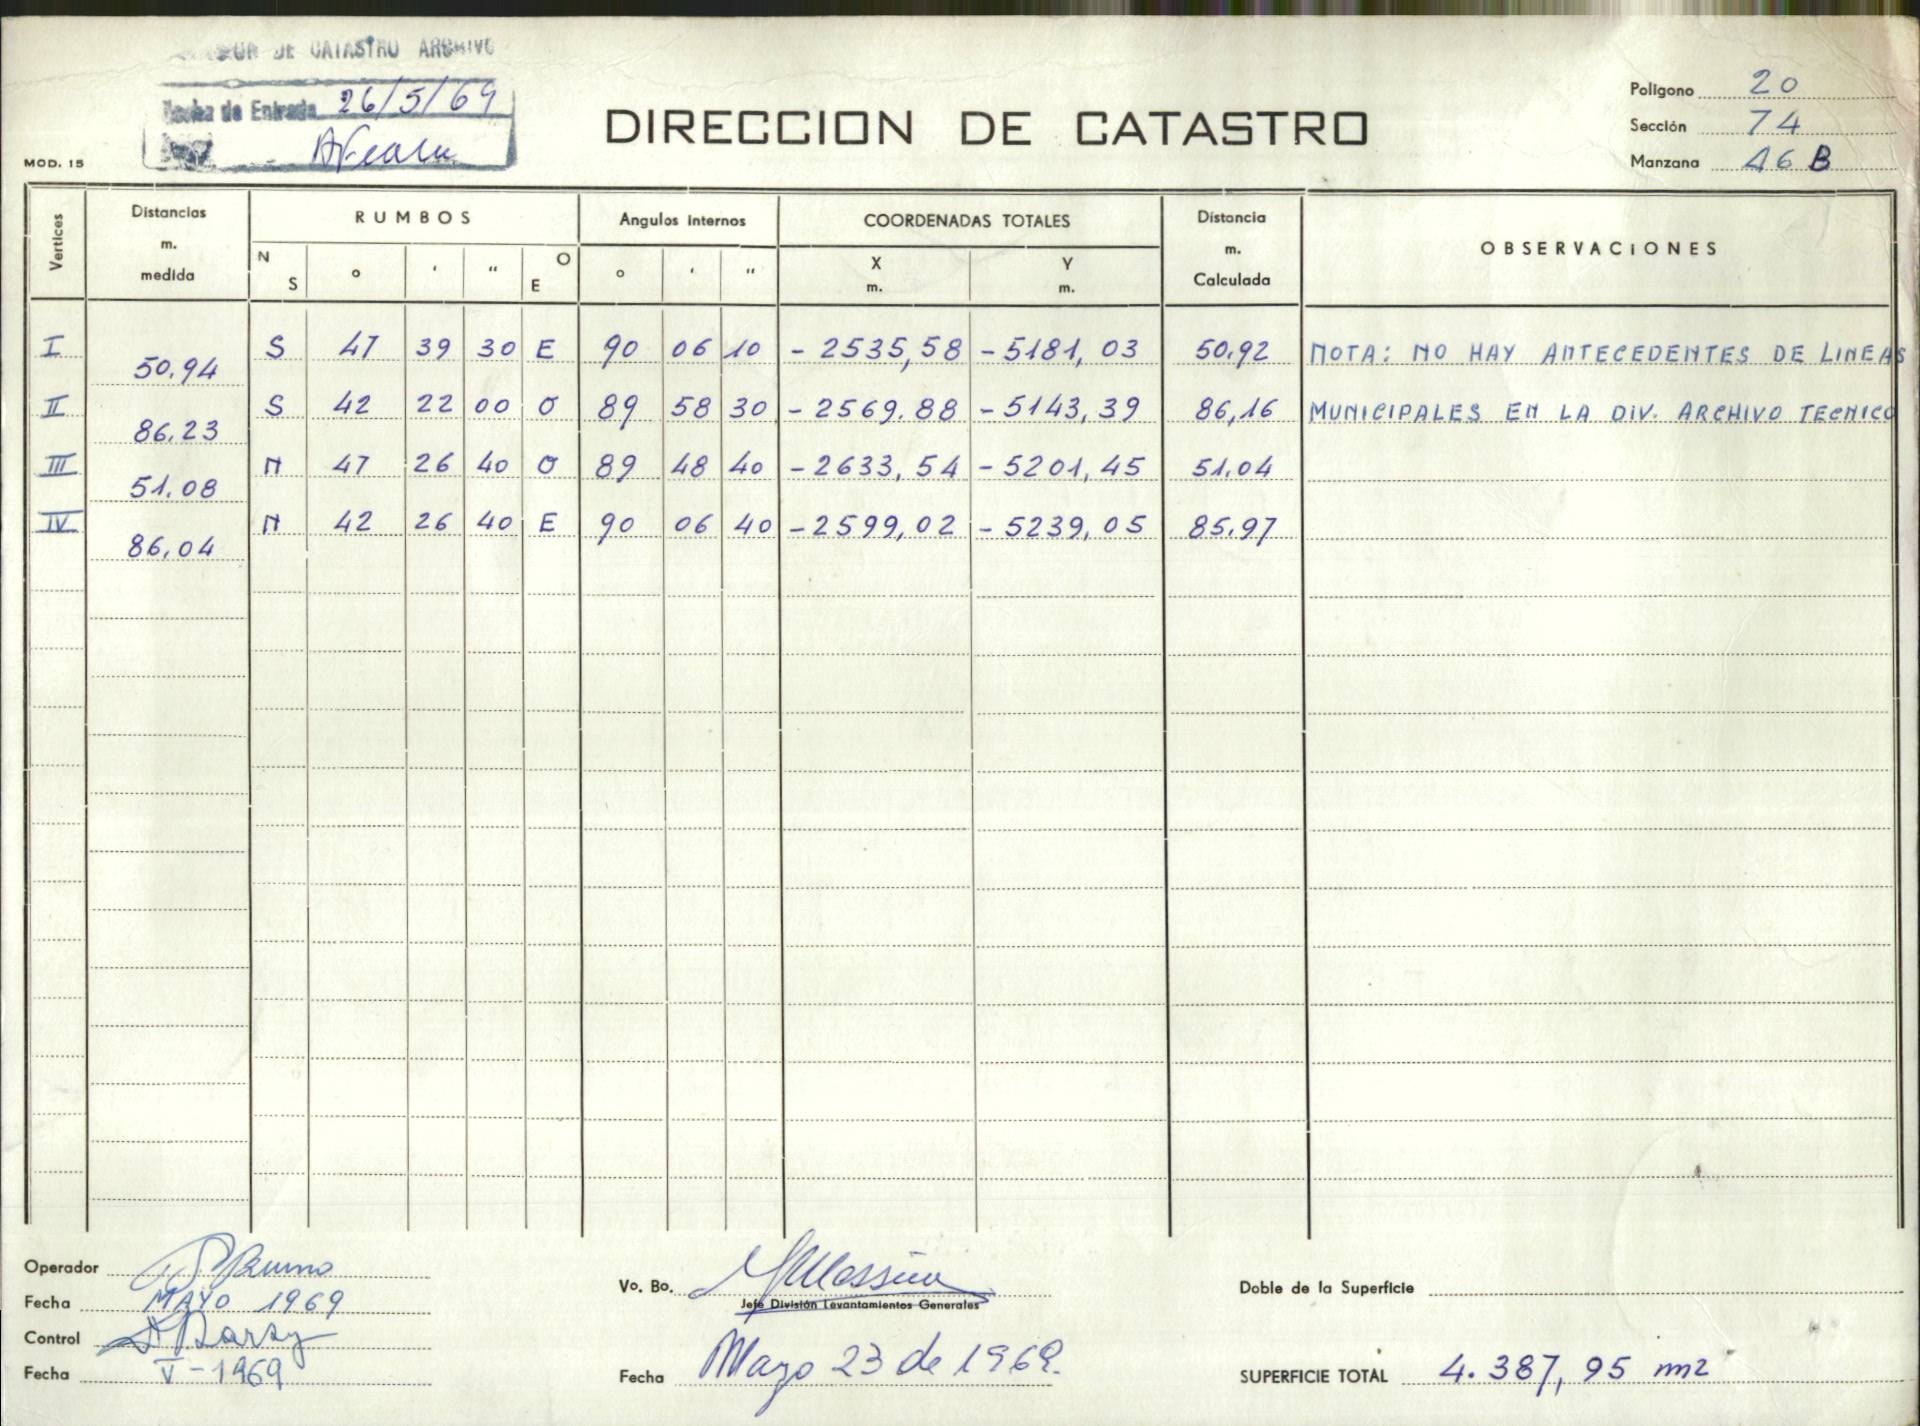 DE CATASTRO ARCHIVO
Fecha de Entrada 26/5/69
MOD. 15
DIRECCION DE CATASTRO
Poligono 20
Sección 74
Manzana 46 B
Vertices Distancias m. medida RUMBOS N S o ' " O E Angulos Internos o ' " COORDENADAS TOTALES X m. Y m. Distancia m. Calculada OBSERVACIONES
I S 47 39 30 E 90 06 10 -2535,58 -5181,03 50.92 NOTA: NO HAY ANTECEDENTES DE LINEAS
50.94
II S 42 22 00 O 89 58 30 -2569.88 -5143,39 86,16 MUNICIPALES EN LA DIV. ARCHIVO TECNICO
86,23
III N 47 26 40 O 89 48 40 -2633,54 -5201,45 51.04
51.08
IV N 42 26 40 E 90 06 40 -2599,02 -5239,05 85.97
86,04
Operador
Fecha MAYO 1969
Control
Fecha V-1969
Vo. Bo.
Jefe División Levantamientos Generales
Fecha Mayo 23 de 1969.
Doble de la Superficie
SUPERFICIE TOTAL 4.387,95 m2